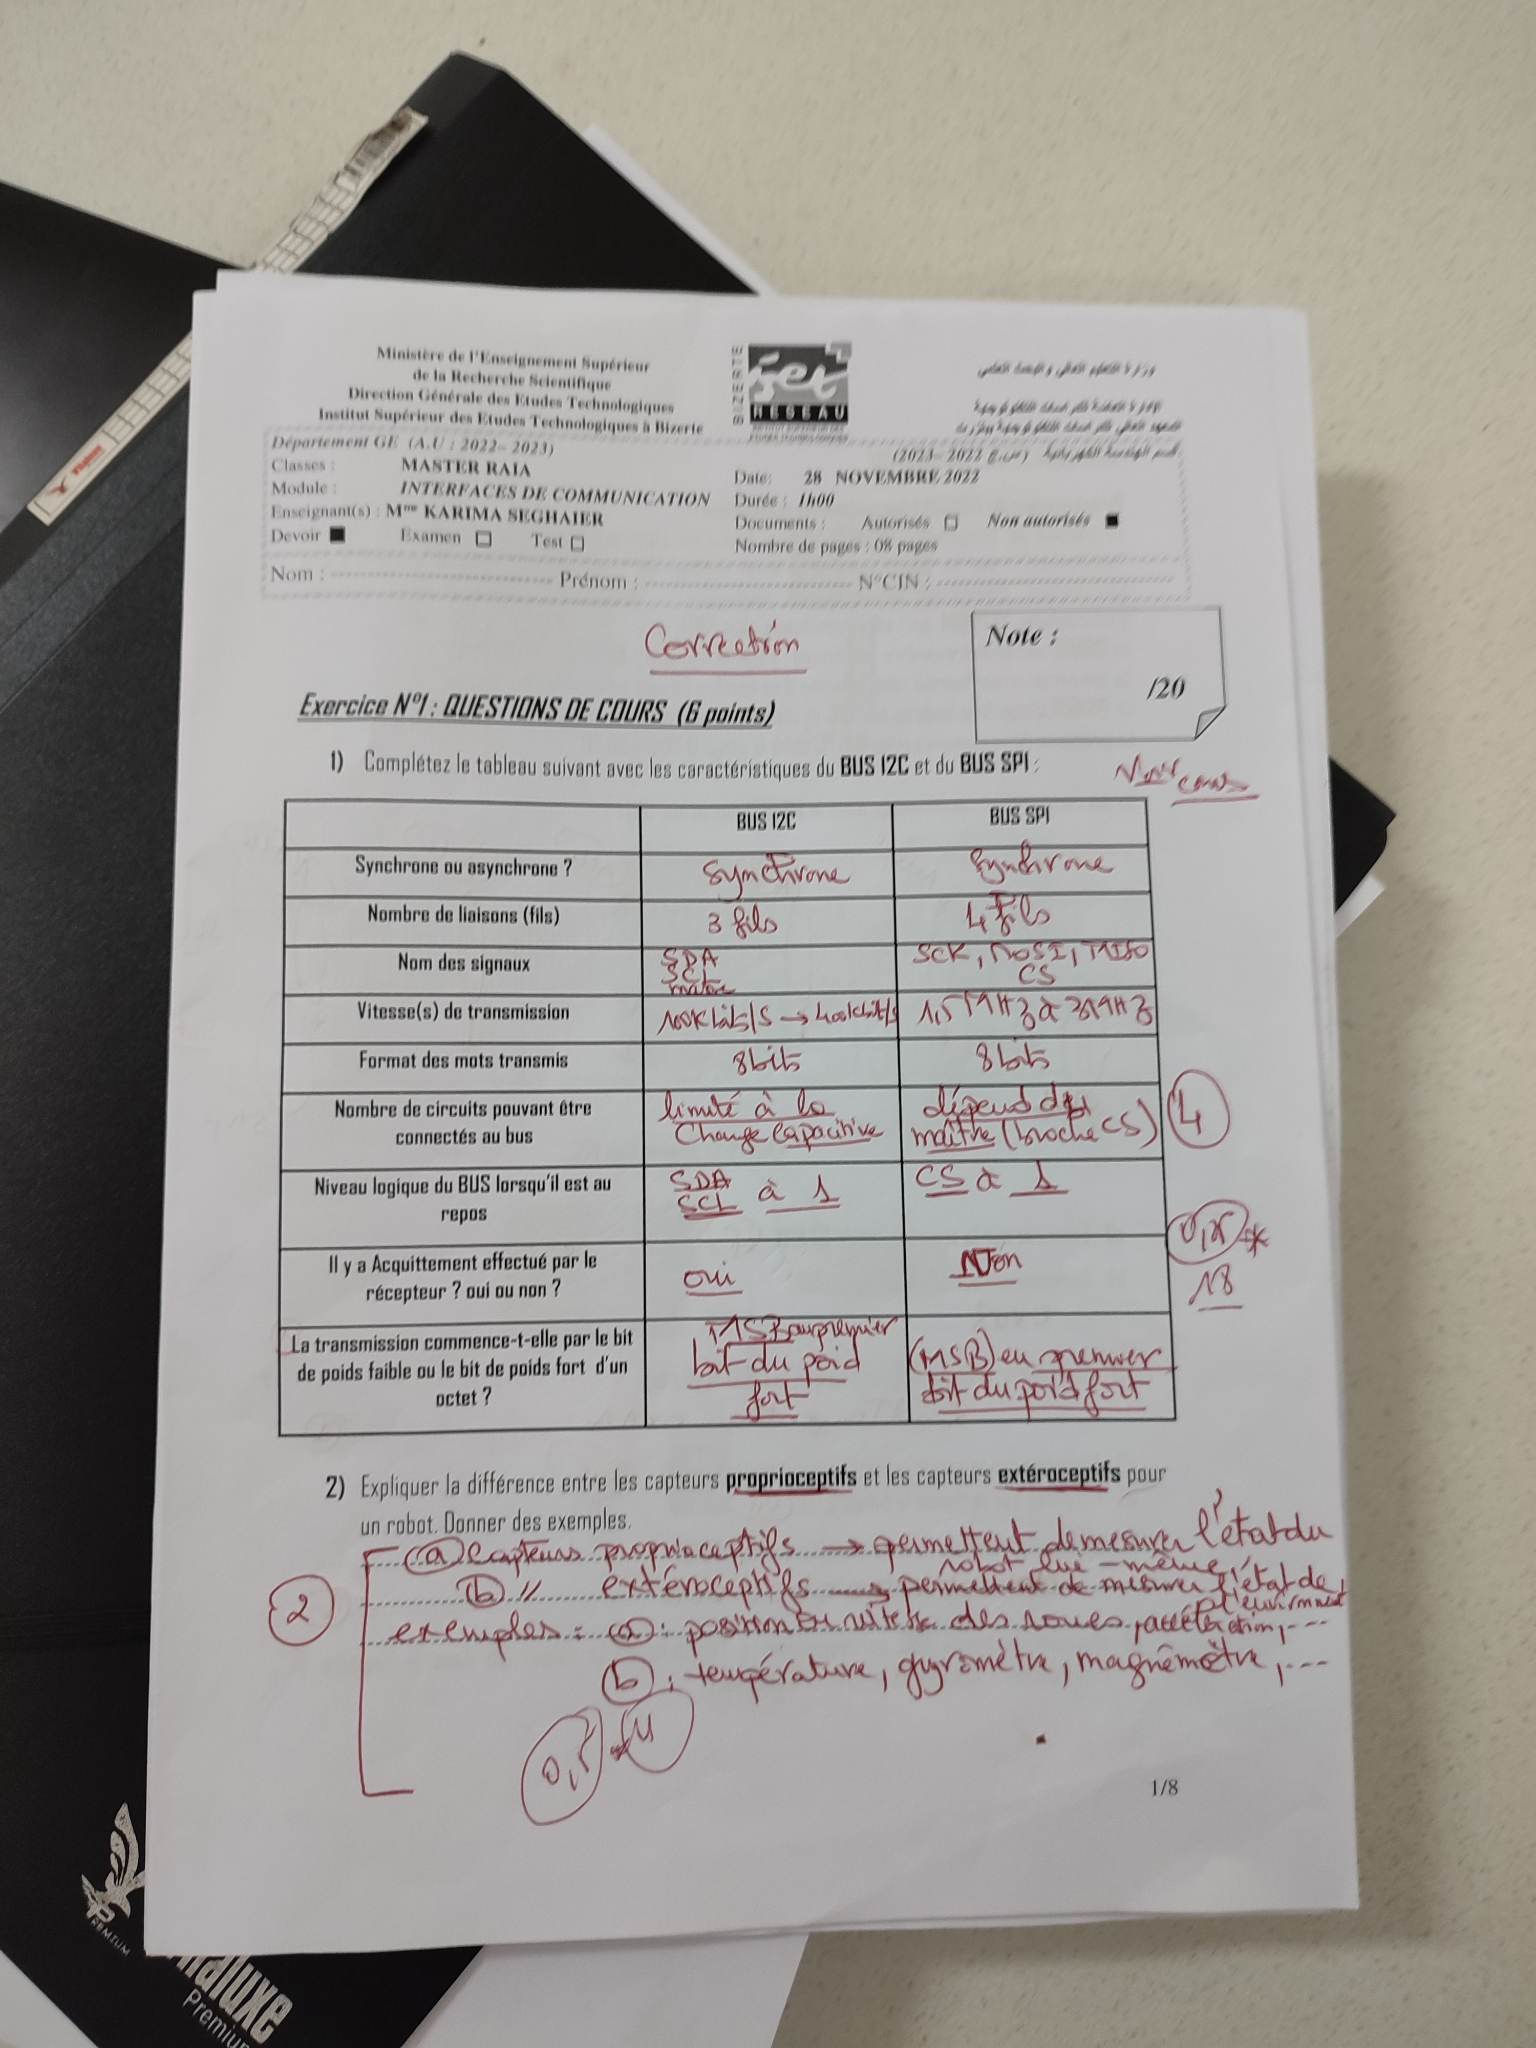 Ministère de l'Enseignement Supérieur
de la Recherche Scientifique
Direction Générale des Etudes Technologiques
Institut Supérieur des Etudes Technologiques à Bizerte
BIZERTE
iset
RESEAU
Département GE (A.U : 2022– 2023)
Classes : MASTER RAIA
Date: 28 NOVEMBRE 2022
Module : INTERFACES DE COMMUNICATION
Durée : 1h00
Enseignant(s) : Mme KARIMA SEGHAIER
Documents : Autorisés ☐ Non autorisés ■
Devoir ■ Examen ☐ Test ☐
Nombre de pages : 08 pages
Nom : Prénom : N°CIN :
Correction
Note :
/20
Exercice N°1 : QUESTIONS DE COURS (6 points)
1) Complétez le tableau suivant avec les caractéristiques du BUS I2C et du BUS SPI :
Voir cours
BUS I2C BUS SPI
Synchrone ou asynchrone ? Synchrone Synchrone
Nombre de liaisons (fils) 3 fils 4 fils
Nom des signaux SDA SCL masse SCK, MOSI, MISO CS
Vitesse(s) de transmission 100Kbits/s → 400kbit/s 1,5 MHz à 3MHz
Format des mots transmis 8bits 8bits
Nombre de circuits pouvant être connectés au bus limité à la Charge Capacitive dépend du maître (broche CS)
4
Niveau logique du BUS lorsqu'il est au repos SDA SCL à 1 CS à 1
Il y a Acquittement effectué par le récepteur ? oui ou non ? oui Non
18
La transmission commence-t-elle par le bit de poids faible ou le bit de poids fort d'un octet ? MSB au premier bit du poid fort (MSB) en premier bit du poid fort
2) Expliquer la différence entre les capteurs proprioceptifs et les capteurs extéroceptifs pour
un robot. Donner des exemples.
(a) Capteurs proprioceptifs → permettent de mesurer l'état du
robot lui-même
(b) // extéroceptifs → permettent de mesurer l'état de
l'environment
2
exemples : (a) : position ou vitesse des roues, accélération, ---
(b) : température, gyromètre, magnémètre, ---
0,5 * 4
1/8
Vitaluxe
Premium
PREMIUM